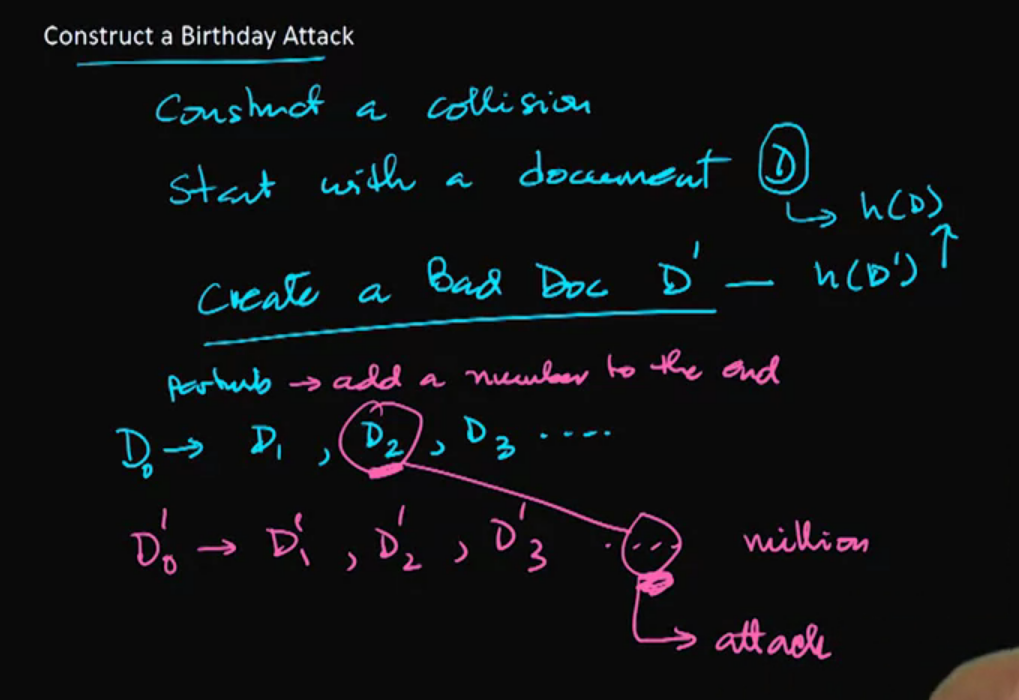 Construct a Birthday Attack
Construct a collision
Start with a document D
↳ h(D)
Create a Bad Doc D' — h(D') ↑
perturb → add a number to the end
D₀ → D₁ , D₂ , D₃ ....
D'₀ → D'₁ , D'₂ , D'₃ .... million
↳ attack